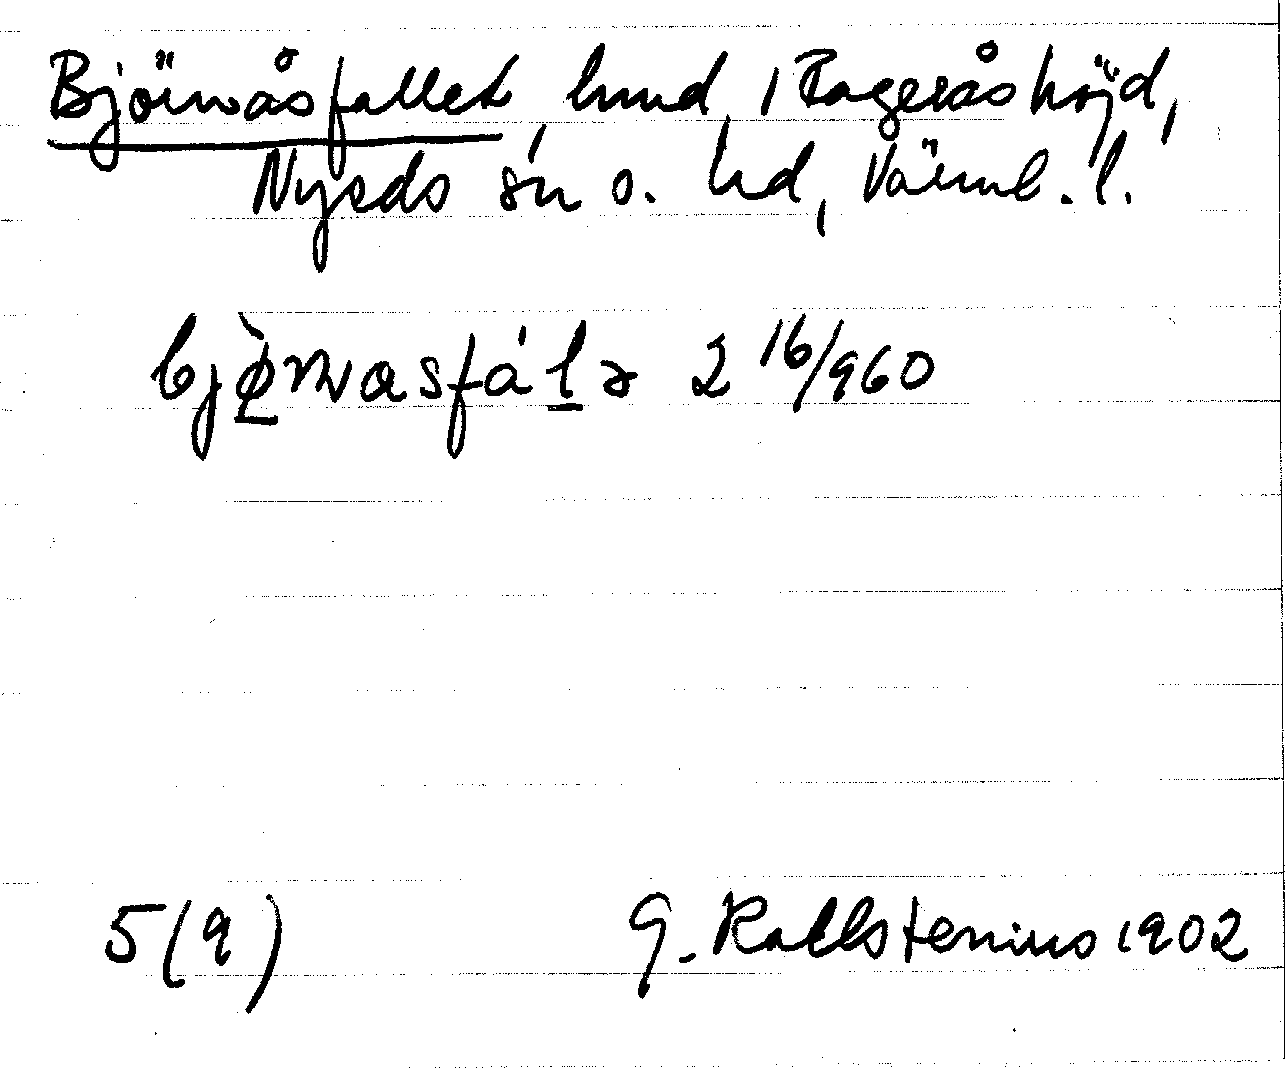 Björnåsfallet hmd, Rageråshöjd,
Nyeds sn o. hd, Värml. l.
bjø̀rnasfálə 2 16/960
5(9) G. Kallstenius 1902